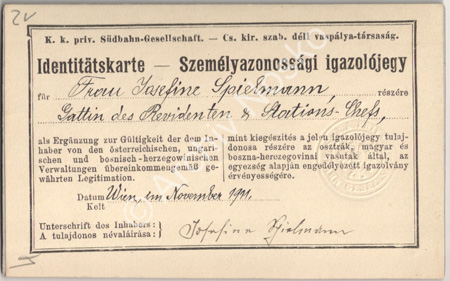 K. k. priv. Südbahn-Gesellschaft. — Cs. kir. szab. déli vaspálya-társaság.
Identitätskarte — Személyazonossági igazolójegy
für Frau Josefine Spielmann, részére
Gattin des Revidenten & Stations-Chefs,
als Ergänzung zur Gültigkeit der dem Inhaber von den österreichischen, ungarischen und bosnisch-herzegowinischen Verwaltungen übereinkommengemäß gewährten Legitimation.
mint kiegészítés a jelen igazolójegy tulajdonosa részére az osztrák, magyar és boszna-herczegovinai vasutak által, az egyezség alapján engedélyezett igazolvány érvényességére.
Datum Wien, im November 1911.
Kelt
Unterschrift des Inhabers:
A tulajdonos névaláírása:
Josefine Spielmann